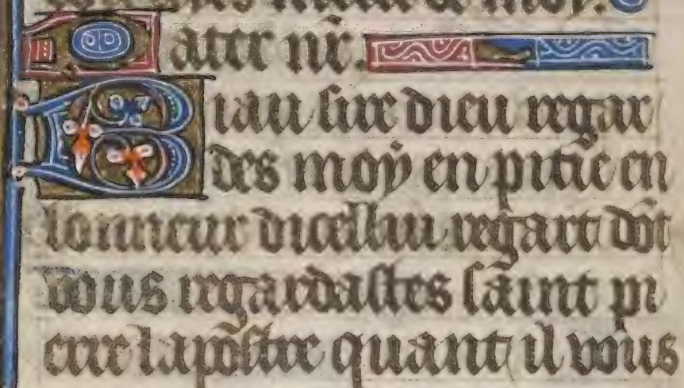 de moy.
Pater nr̄.
Biau sire dieu regar
des moy en pitie en
lonneur dicellui regart dōt
vous regardastes saint pi
erre lapostre quant il vous